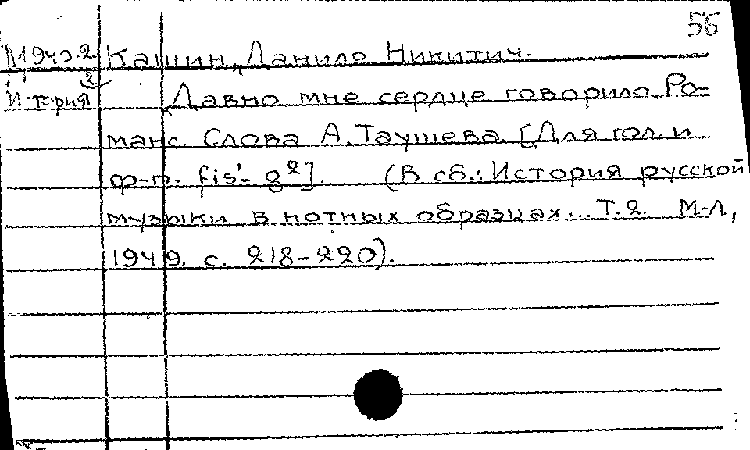 56
Кашин, Данило Никитич.
Давно мне сердце говорило. Ро=
манс. Слова А. Таушева. [Для гол. и
ф-п. fis'- g²]. (В сб.: История русской
музыки в нотных образцах. Т. 2. М-Л,
1949. с. 218-220).